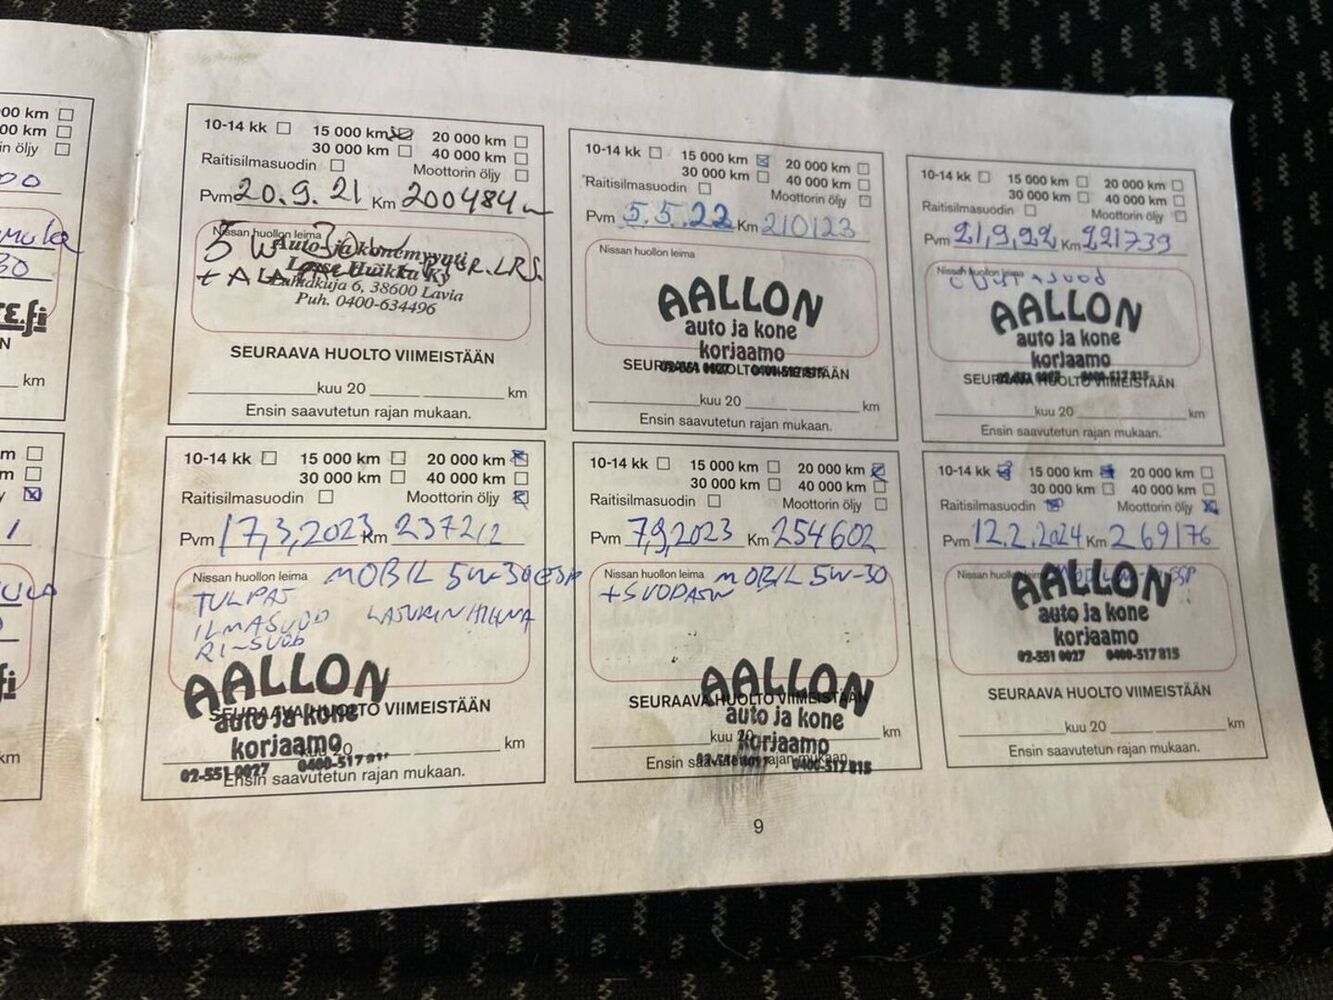 00 km
00 km
in öljy
00
30
TE.fi
N
km
m
m
y
1
fi
km
10-14 kk 15 000 km 20 000 km
30 000 km 40 000 km
Raitisilmasuodin Moottorin öljy
Pvm 20.9.21 Km 200484
Nissan huollon leima
5W30
Auto- ja konemyynti
Lasse Huikku Ky
6, 38600 Lavia
Puh. 0400-634496
SEURAAVA HUOLTO VIIMEISTÄÄN
kuu 20 km
Ensin saavutetun rajan mukaan.
10-14 kk 15 000 km 20 000 km
30 000 km 40 000 km
Raitisilmasuodin Moottorin öljy
Pvm 5.5.22 Km 210123
Nissan huollon leima
AALLON
auto ja kone
korjaamo
02-551 0027 0400-517 815
SEURAAVA HUOLTO VIIMEISTÄÄN
kuu 20 km
Ensin saavutetun rajan mukaan.
10-14 kk 15 000 km 20 000 km
30 000 km 40 000 km
Raitisilmasuodin Moottorin öljy
Pvm 21,9,22 Km 221739
Nissan huollon leima
AALLON
auto ja kone
korjaamo
02-551 0027 0400-517 815
SEURAAVA HUOLTO VIIMEISTÄÄN
kuu 20 km
Ensin saavutetun rajan mukaan.
10-14 kk 15 000 km 20 000 km
30 000 km 40 000 km
Raitisilmasuodin Moottorin öljy
Pvm 17,3,2023 Km 237212
Nissan huollon leima MOBIL 5W-30 ESP
TULPAT
ILMASUOD LATURIN HIHNA
RI-SUOD
AALLON
SEURAAVA HUOLTO VIIMEISTÄÄN
auto ja kone
korjaamo
kuu 20 km
02-551 0027 0400-517
Ensin saavutetun rajan mukaan.
10-14 kk 15 000 km 20 000 km
30 000 km 40 000 km
Raitisilmasuodin Moottorin öljy
Pvm 7,9,2023 Km 254602
Nissan huollon leima MOBIL 5W-30
+SUODATIN
AALLON
SEURAAVA HUOLTO VIIMEISTÄÄN
auto ja kone
kuu 20 km
korjaamo
Ensin saavutetun rajan mukaan.
02-551 0027 0400-517 815
10-14 kk 15 000 km 20 000 km
30 000 km 40 000 km
Raitisilmasuodin Moottorin öljy
Pvm 12.2.2024 Km 269176
Nissan huollon ESP
AALLON
auto ja kone
korjaamo
02-551 0027 0400-517 815
SEURAAVA HUOLTO VIIMEISTÄÄN
kuu 20 km
Ensin saavutetun rajan mukaan.
9